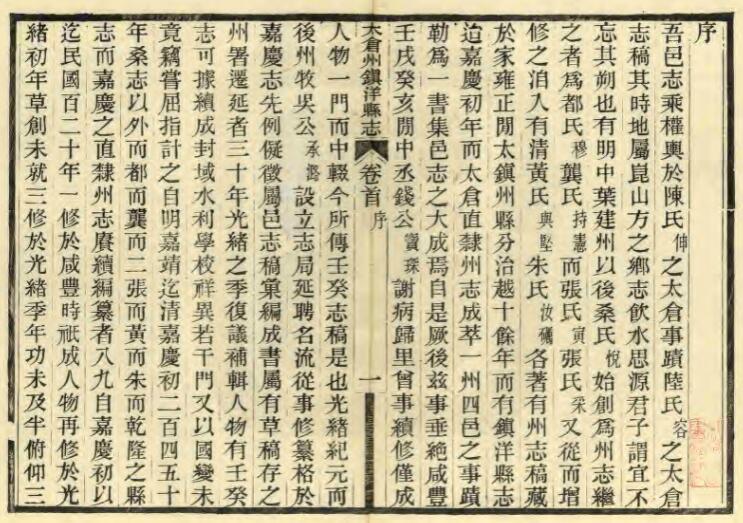 序
吾邑志乘權輿於陳氏伸之太倉事蹟陸氏容之太倉
志稿其時地屬崑山方之鄉志飲水思源君子謂宜不
忘其朔也有明中葉建州以後桑氏悅始創爲州志繼
之者爲都氏穆龔氏持憲而張氏寅張氏采又從而增
修之洎入有清黃氏與堅朱氏汝礪各著有州志稿藏
於家雍正閒太鎮州縣分治越十餘年而有鎮洋縣志
迨嘉慶初年而太倉直隸州志成萃一州四邑之事蹟
勒爲一書集邑志之大成焉自是厥後兹事垂絶咸豐
壬戌癸亥閒中丞錢公寶琛謝病歸里曾事續修僅成
太倉州鎮洋縣志
卷首
序
一
人物一門而中輟今所傳壬癸志稿是也光緒紀元而
後州牧吳公承潞設立志局延聘名流從事修纂格於
嘉慶志先例儗徵屬邑志稿彙編成書屬有草稿存之
州署遷延者三十年光緒之季復議補輯人物有壬癸
志可據續成封域水利學校祥異若干門又以國變未
竟竊嘗屈指計之自明嘉靖迄清嘉慶初二百四五十
年桑志以外而都而龔而二張而黃而朱而乾隆之縣
志而嘉慶之直隸州志賡續編纂者八九自嘉慶初以
迄民國百二十年一修於咸豐時祇成人物再修於光
緒初年草創未就三修於光緒季年功未及半俯仰三